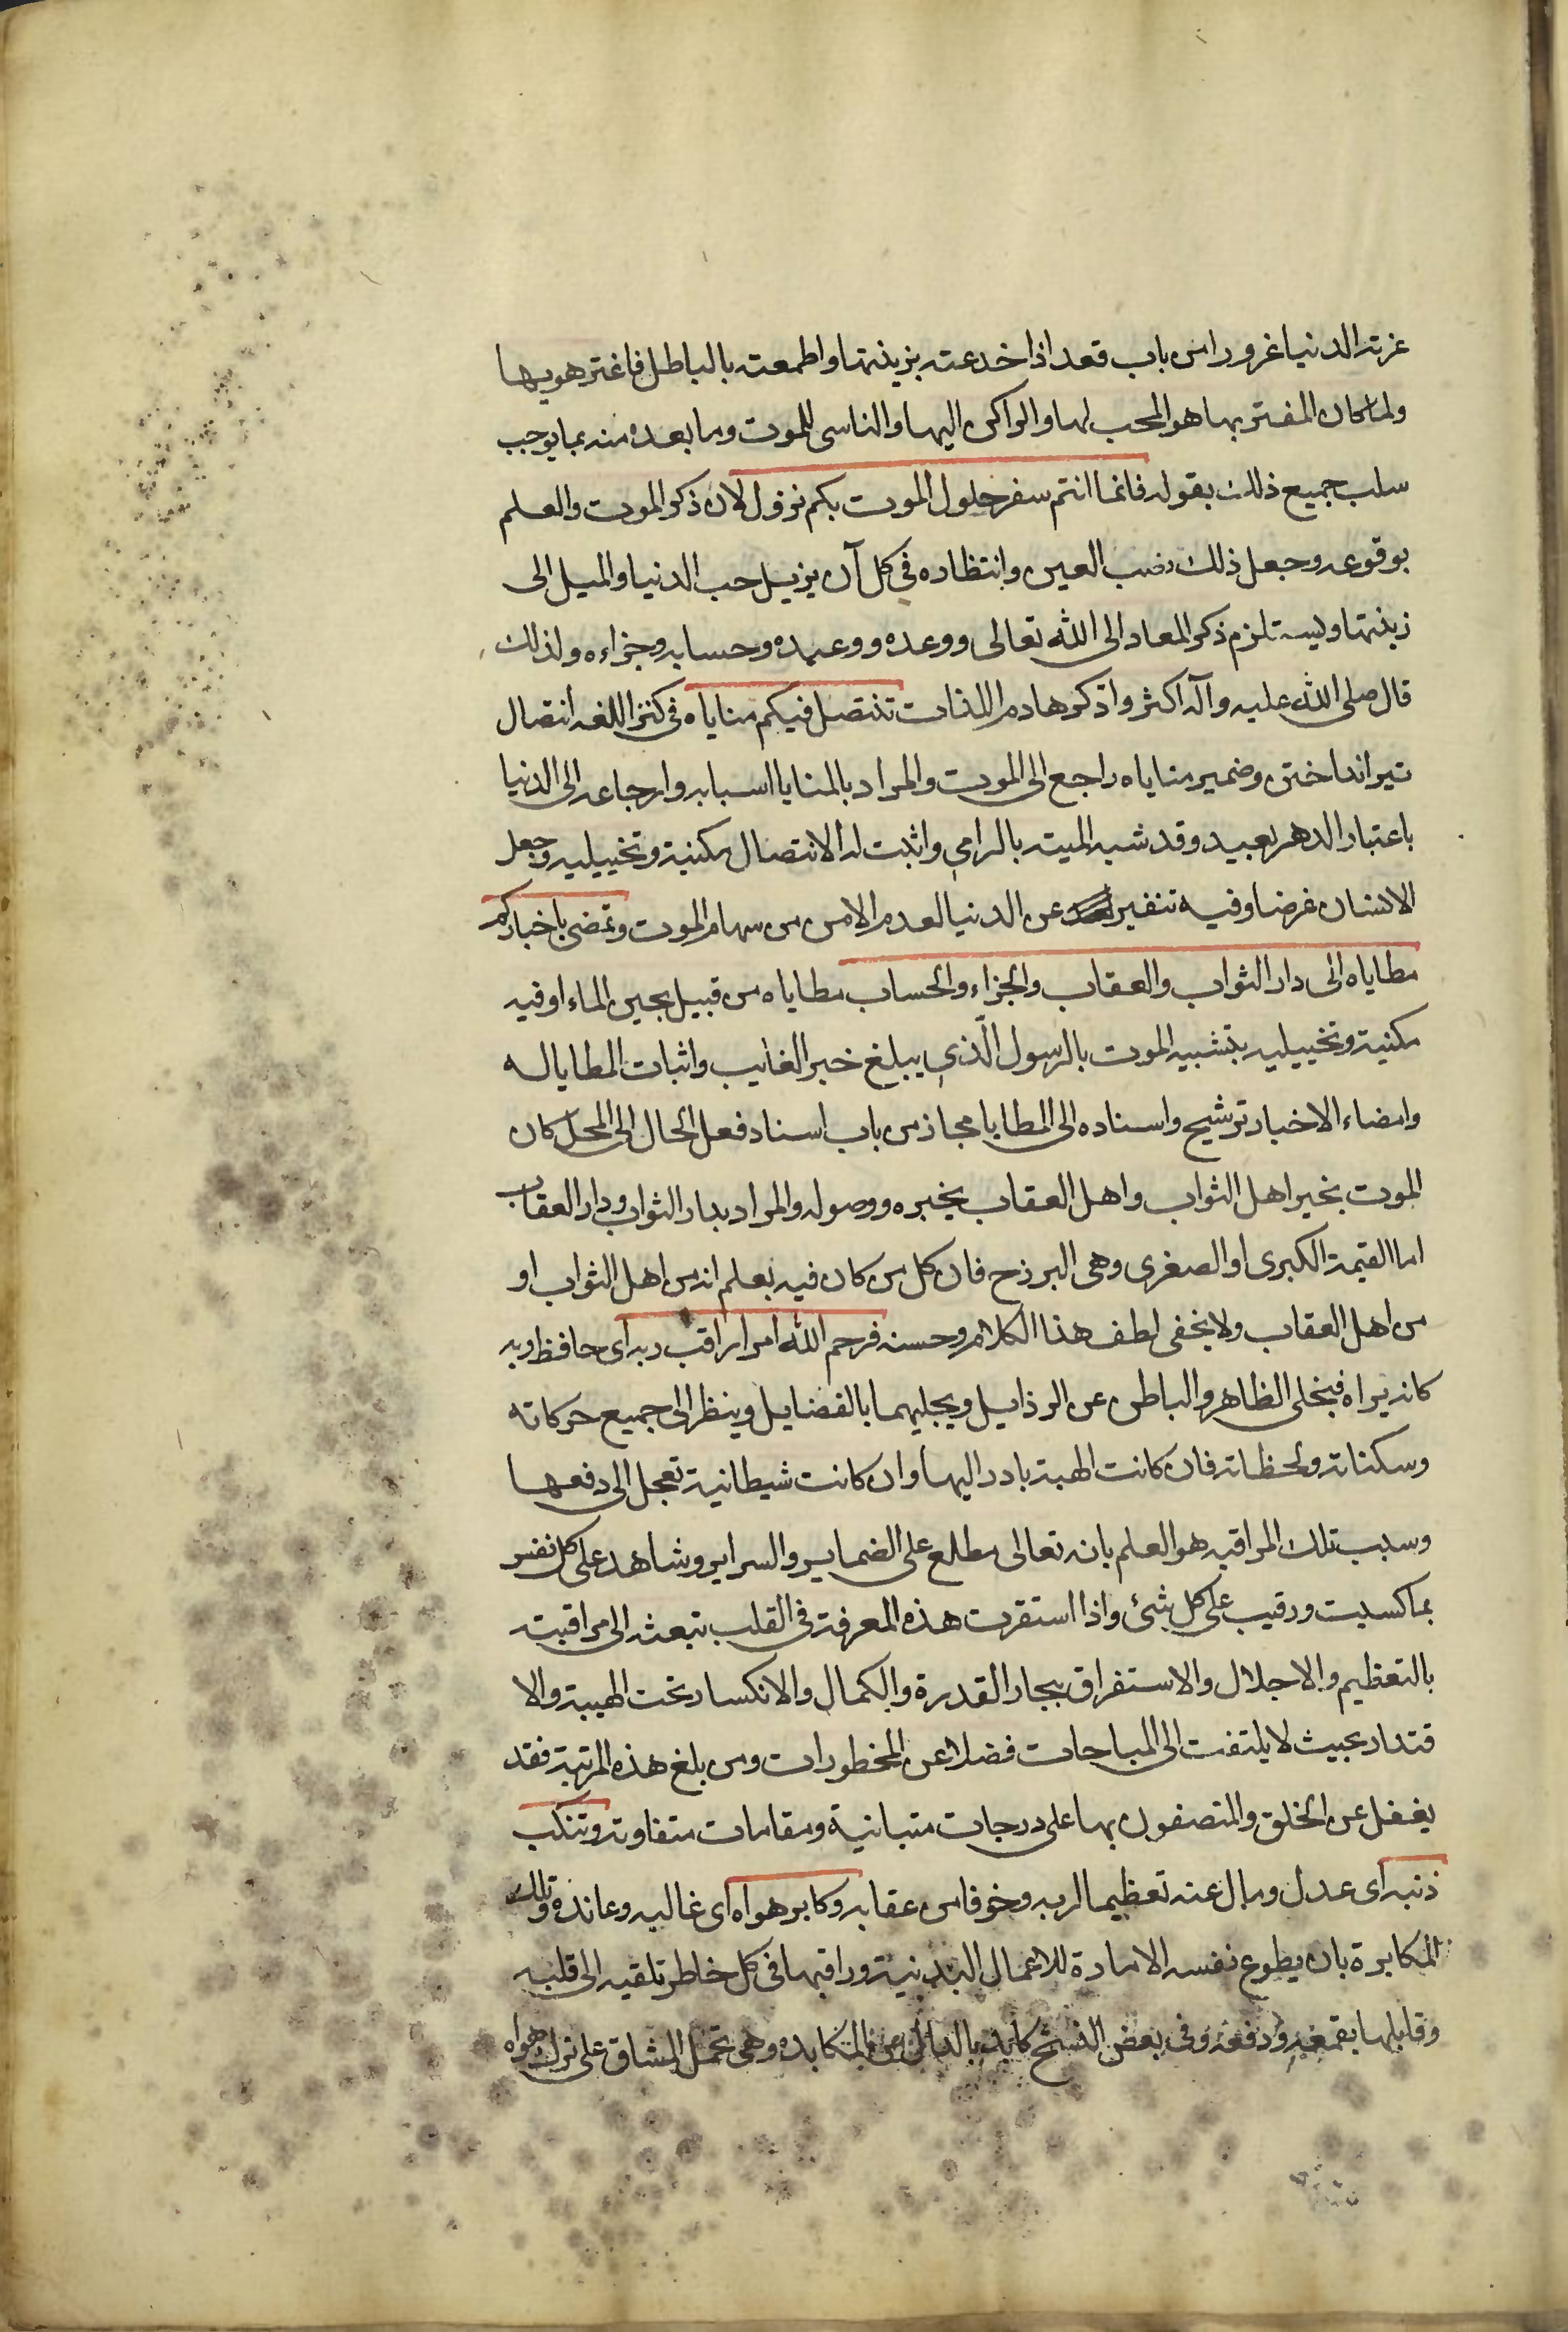 غرته الدنيا غرورا من باب قعد اذا خدعته بزينتها واطمعته بالباطل فاغتر هو بها
ولما كان المغتر بها هو المحب لها والراكن اليها والناسى للموت وما بعده منه بما يوجب
سلب جميع ذلك بقوله فانما انتم سفر حلول الموت بكم نزول لان ذكر الموت والعلم
بوقوعه وجعل ذلك نصب العين وانتظاره فى كل آن يزيل حب الدنيا والميل الى
زينتها ويستلزم ذكر المعاد الى الله تعالى ووعده ووعيده وحسابه وجزاءه ولذلك
قال صلى الله عليه وآله اكثروا ذكر هادم اللذات تنتصل فيكم مناياه فى كنز اللغه انتصال
تير انداختن وضمير مناياه راجع الى الموت والمراد بالمنايا اسبابه وارجاعه الى الدنيا
باعتبار الدهر بعيد وقد شبه الميته بالرامى واثبت له الانتصال مكنية وتخييليه وجعل
الانسان غرضا وفيه تنفير عن الدنيا لعدم الامن من سهام الموت وتمضى باخباركم
مطاياه الى دار الثواب والعقاب والجزاء والحساب مطاياه من قبيل بجين الماء او فيه
مكنية وتخييليه بتشبيه الموت بالرسول الّذى يبلغ خبر الغايب واثبات المطايا له
وامضاء الاخبار ترشيح واسناده الى المطايا مجاز من باب اسناد فعل الحال الى المحل كان
الموت يخبر اهل الثواب واهل العقاب بخبره ووصوله والمراد بدار الثواب ودار العقاب
اما القيمة الكبرى او الصغرى وهى البرزخ فان كل من كان فيه يعلم انه من اهل الثواب او
من اهل العقاب ولا يخفى لطف هذا الكلام وحسنه فرحم الله امرا راقب ربه اى حافظ ربه
كانه يراه فيخلى الظاهر والباطن عن الرذايل ويجليهما بالفضايل وينظر الى جميع حركاته
وسكناته ولحظاته فان كانت الهية بادر اليها وان كانت شيطانية تعجل الى دفعها
وسبب تلك المراقبه هو العلم بانه تعالى مطلع على الضماير والسراير وشاهد على كل نفس
بما كسبت ورقيب على كل شئ واذا استقرت هذه المعرفة فى القلب تبعثه الى مراقبته
بالتعظيم والاجلال والاستغراق ببحار القدرة والكمال والانكسار تحت الهيبة والا
قتدار بحيث لا يلتفت الى المباحات فضلا عن المخطورات ومن بلغ هذه المرتبة فقد
يغفل عن الخلق والمتصفون بها على درجات متبانية ومقامات متفاوته وتنكب
ذنبه اى عدل ومال عنه تعظيما لربه وخوفا من عقابه وكابر هواه اى غالبه وعانده وتلك
المكابرة بان يطوع نفسه الامارة للاعمال البدنية وراقبها فى كل خاطر تلقيه الى قلبه
وقابلها بقمعه ودفعه وفى بعض النسخ كابد بالدال من المكابده وهى تحمل المشاق على ترك هواه